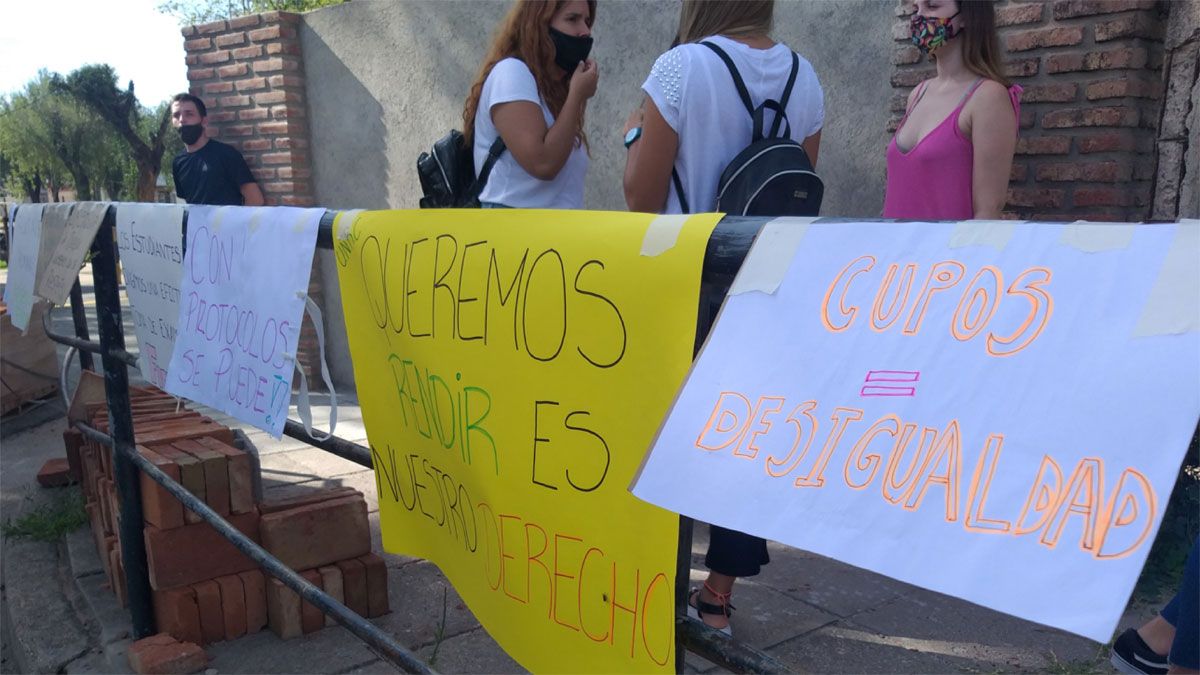 ES ESTUDIANTES
DÍA DE EXAM
CON
PROTOCOLOS
SE PUEDE!!
QUEREMOS
RENDIR ES
NUESTRO DERECHO
CUPOS
=
DESIGUALDAD